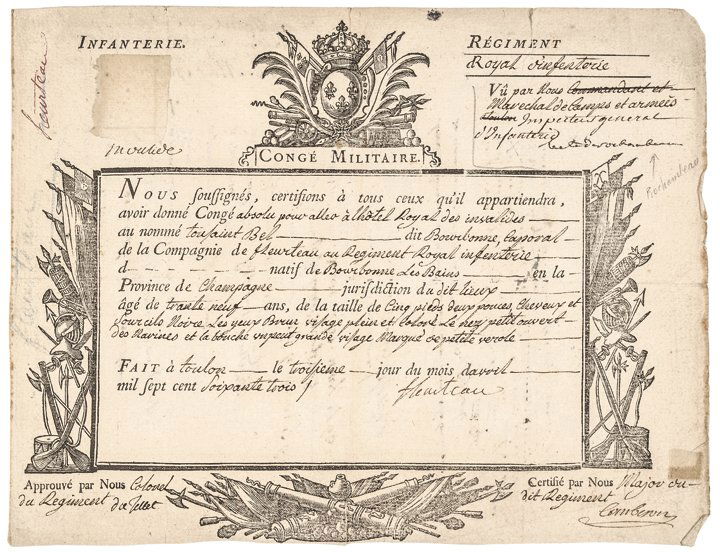 INFANTERIE.
heurteau
invalide
RÉGIMENT
Royal infenterie
Vû par Nous Commandant et
Marechal de Camps et armées
Toulon Inspecteur general
d'Infanterie
Rochambeau
CONGÉ MILITAIRE.
NOUS soussignés, certifions à tous ceux qu'il appartiendra,
avoir donné Congé absolu pour aller à lhôtel Royal des invalides
au nommé tousaint Bel dit Bourbonne, Caporal
de la Compagnie de heurteau au Regiment Royal infenterie
d natif de Bourbonne Les Bains en la
Province de Champagne jurisdiction du dit Lieux
âgé de trante neuf ans, de la taille de Cinq pieds deux pouces, Cheveux et
Sourcils Noirs Les yeux Brun visage plein et Coloré Le nez petit ouvert
des Narines et la bouche un peut grande visage Marqué de petite verole
FAIT à toulon le troisieme jour du mois davril
mil sept cent Soixante trois
heurteau
Approuvé par Nous Colonel
du Regiment
Certifié par Nous Major du
dit Regiment